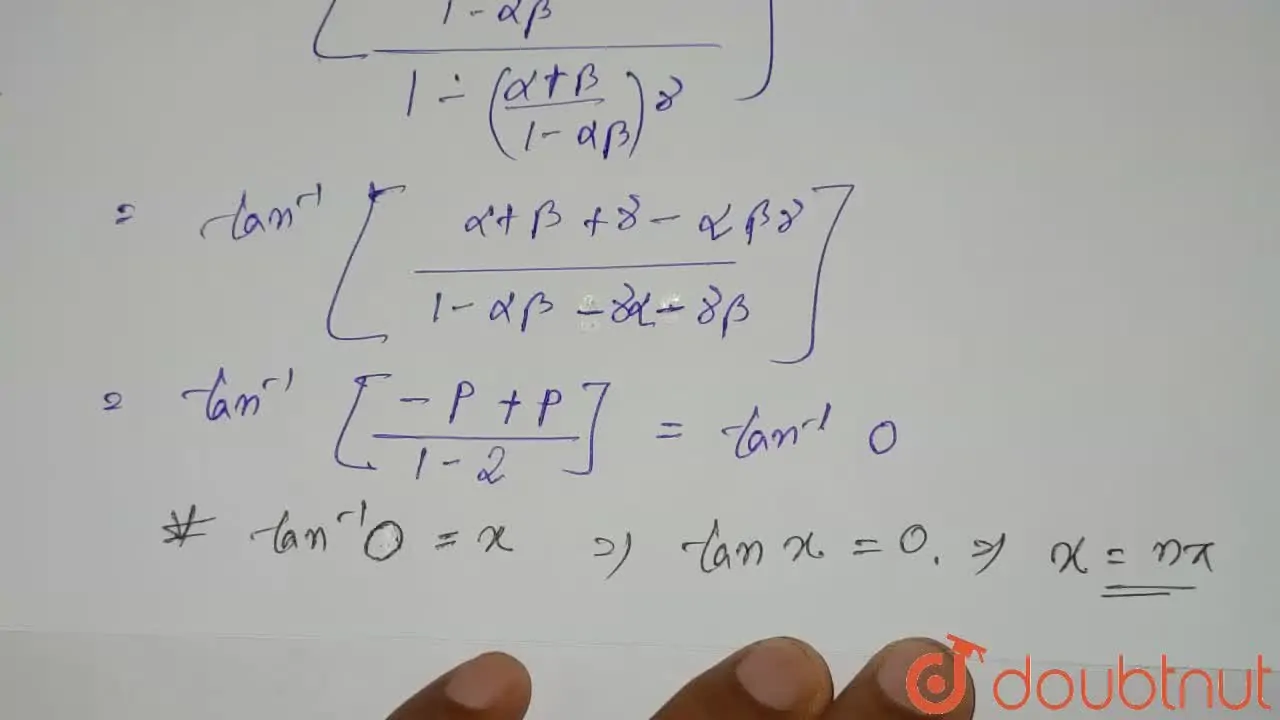 1 - αβ
1 - (α + β / 1 - αβ) γ
= tan⁻¹ [ α + β + γ - αβγ / 1 - αβ - γα - γβ ]
= tan⁻¹ [ - P + P / 1 - 2 ] = tan⁻¹ 0
* tan⁻¹ 0 = x ⇒ tan x = 0. ⇒ x = nπ
doubtnut